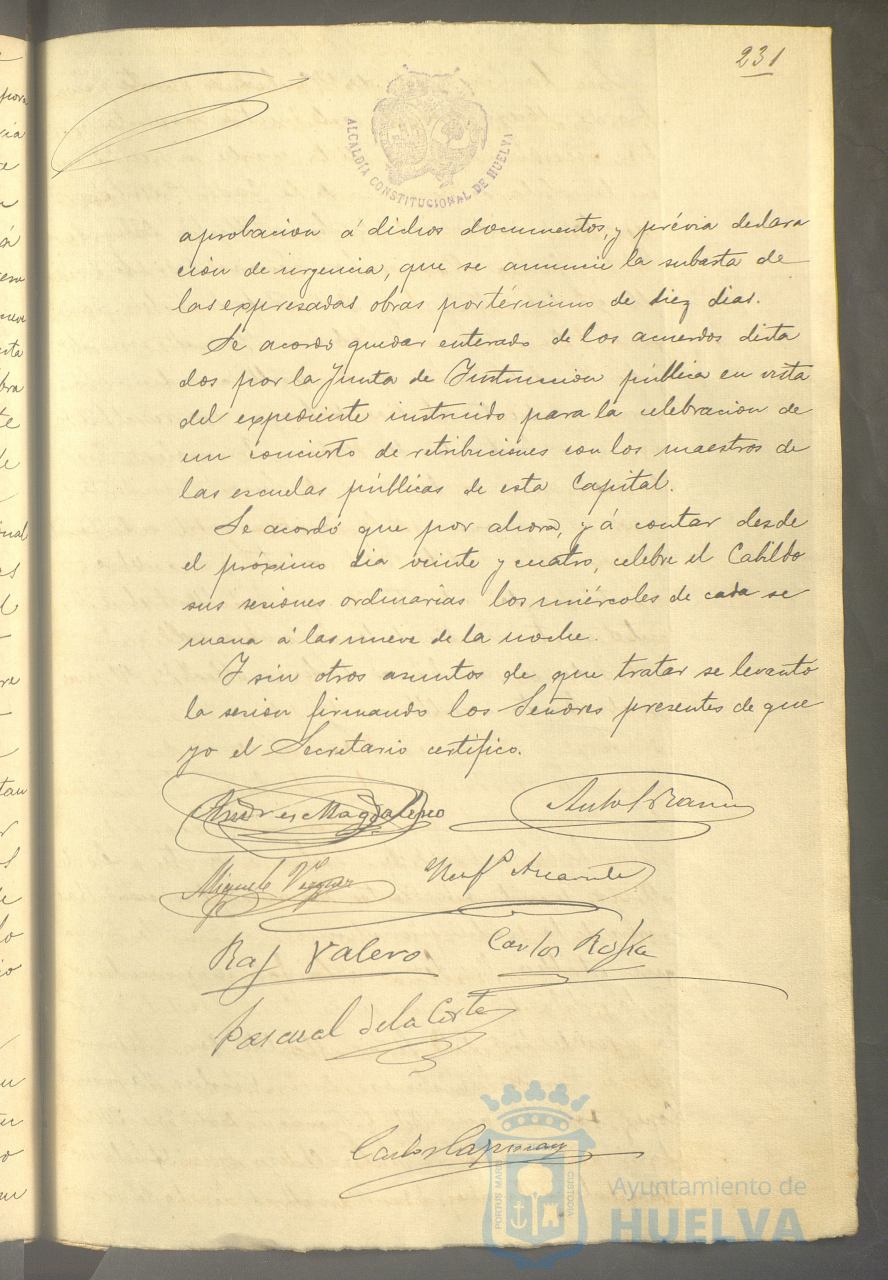 231
ALCALDÍA CONSTITUCIONAL DE HUELVA
aprobacion á dichos documentos, y prévia declara
cion de urgencia, que se anuncie la subasta de
las expresadas obras por término de diez dias.
Se acordó quedar enterado de los acuerdos dicta
dos por la Junta de Instruccion pública en vista
del expediente instruido para la celebracion de
un concierto de retribuciones con los maestros de
las escuelas públicas de esta Capital.
Se acordó que por ahora, y á contar desde
el próximo dia veinte y cuatro, celebre el Cabildo
sus sesiones ordinarias los miércoles de cada se
mana á las nueve de la noche.
Y sin otros asuntos de que tratar se levantó
la sesion firmando los Señores presentes de que
yo el Secretario certifico.
Andres Magdaleno
Miguel
Raf Valero Carlos
Pascual de la Corte
Carlos
PORTUS MARIS CUSTODIA
Ayuntamiento de
HUELVA